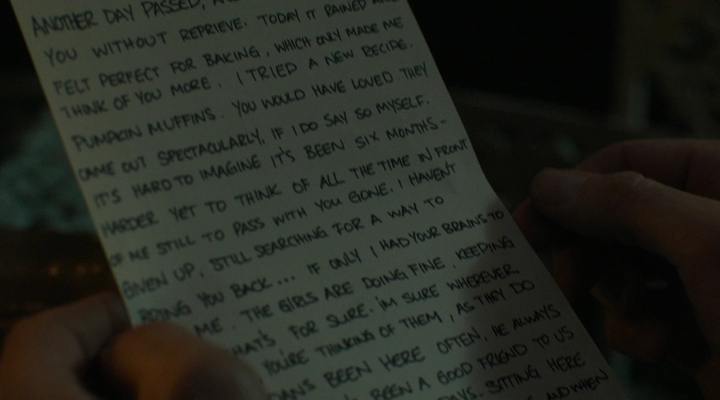 ANOTHER DAY PASSED,
YOU WITHOUT REPRIEVE. TODAY IT RAINED AND
FELT PERFECT FOR BAKING, WHICH ONLY MADE ME
THINK OF YOU MORE. I TRIED A NEW RECIPE.
PUMPKIN MUFFINS. YOU WOULD HAVE LOVED THEY
CAME OUT SPECTACULARLY, IF I DO SAY SO MYSELF.
IT'S HARD TO IMAGINE IT'S BEEN SIX MONTHS-
HARDER YET TO THINK OF ALL THE TIME IN FRONT
OF ME STILL TO PASS WITH YOU GONE. I HAVEN'T
GIVEN UP, STILL SEARCHING FOR A WAY TO
BRING YOU BACK... IF ONLY I HAD YOUR BRAINS TO
ME. THE GIRLS ARE DOING FINE, KEEPING
THAT'S FOR SURE. I'M SURE WHEREVER
YOU'RE THINKING OF THEM, AS THEY DO
BEEN HERE OFTEN, HE ALWAYS
BEEN A GOOD FRIEND TO US
DAYS. SITTING HERE
AND WHEN